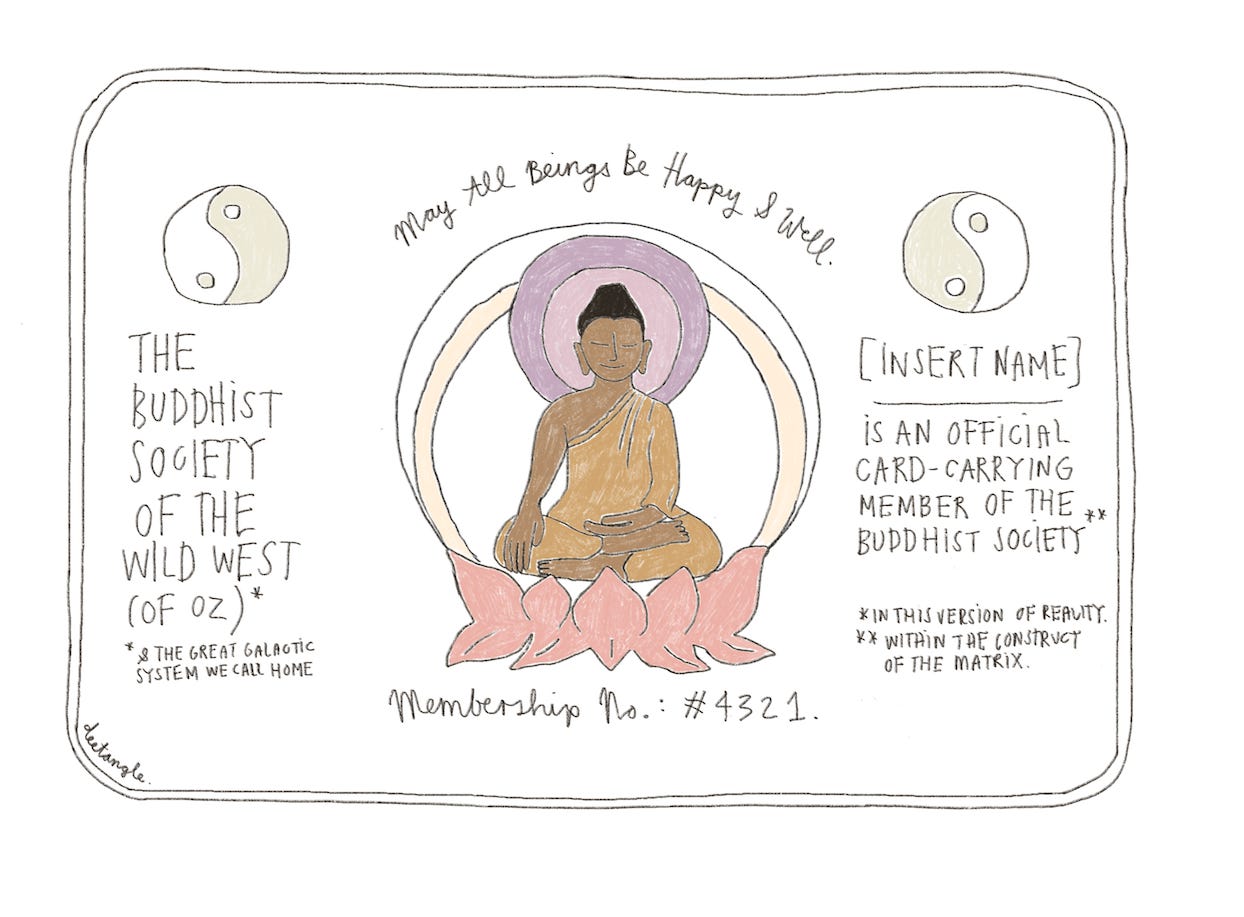 May All Beings Be Happy & Well.
THE
BUDDHiST
SOCIETY
OF THE
WILD WEST
(OF OZ)*
* & THE GREAT GALACTIC
SYSTEM WE CALL HOME
[INSERT NAME]
iS AN OFFICIAL
CARD-CARRYING
MEMBER OF THE
BUDDHIST SOCIETY**
*IN THIS VERSION OF REALITY.
** WITHIN THE CONSTRUCT
OF THE MATRIX.
Membership No.: #4321.
deetangle.